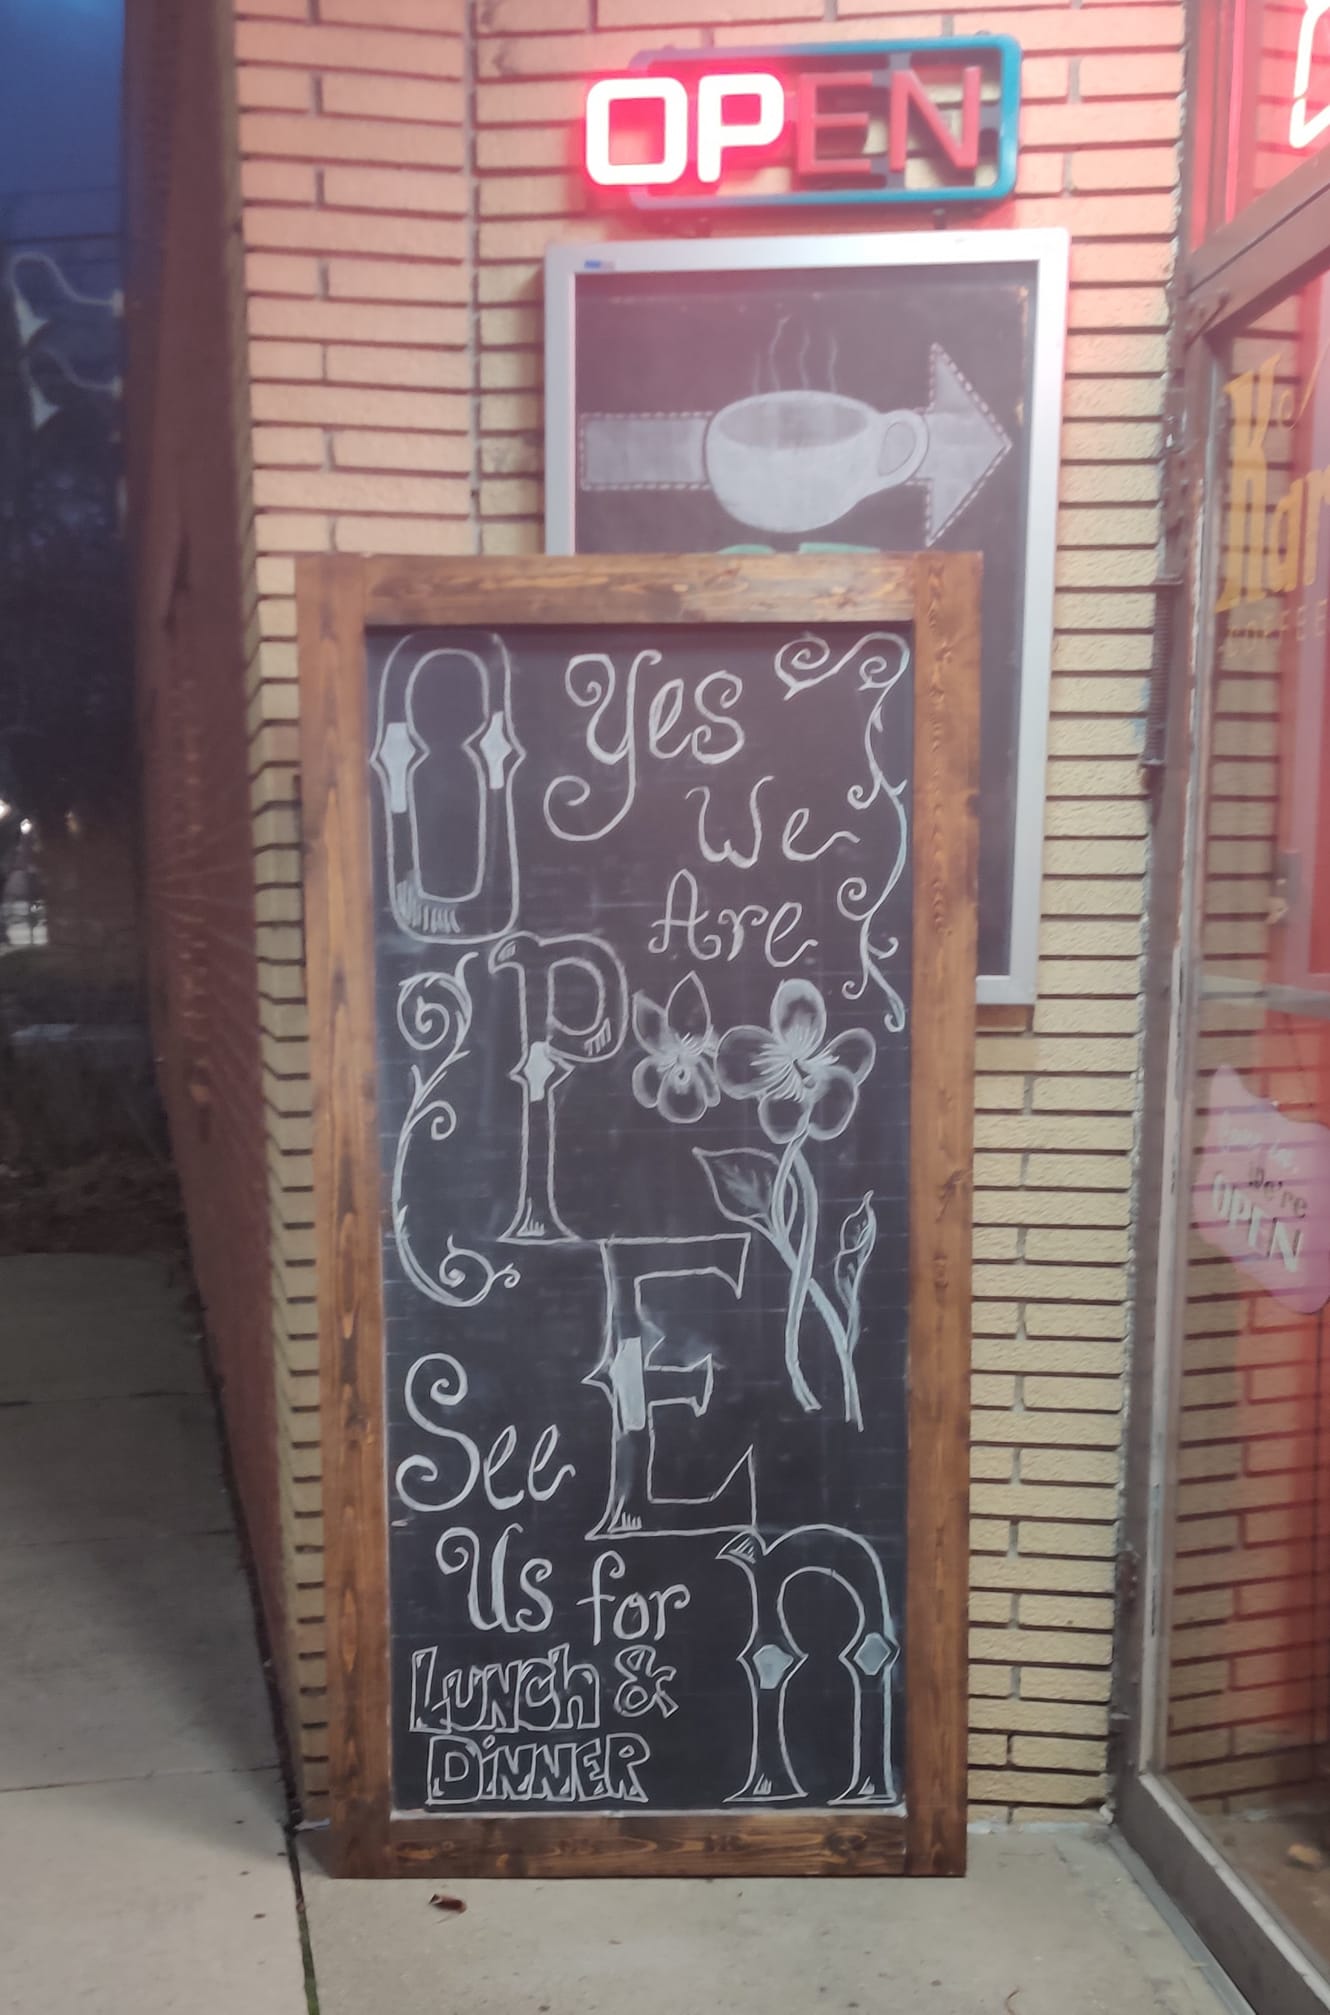 OPEN
Yes
We
Are
OPEn
See
Us for
Lunch &
Dinner
We're
OPEN